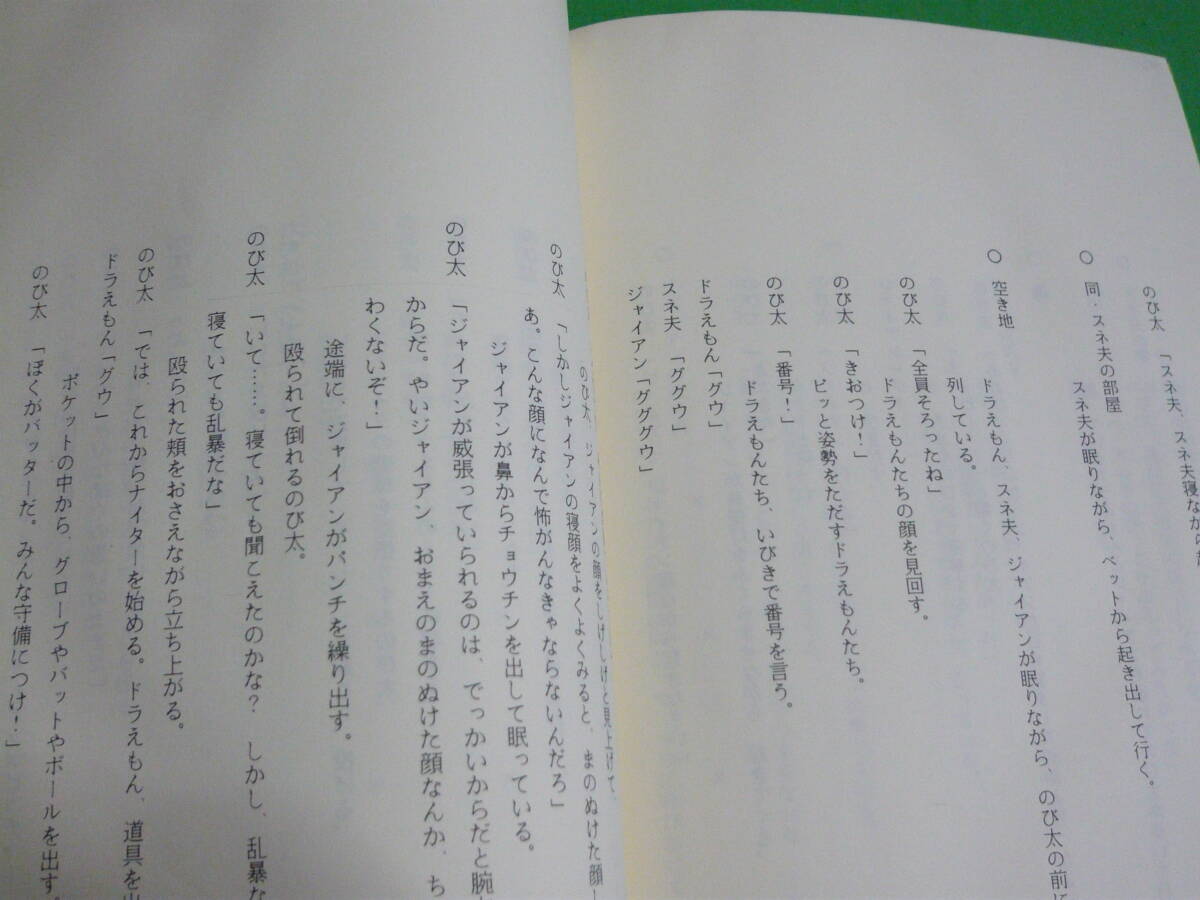 のび太 「スネ夫、スネ夫寝ながら
○ 同・スネ夫の部屋
スネ夫が眠りながら、ベットから起き出して行く。
○ 空き地
ドラえもん、スネ夫、ジャイアンが眠りながら、のび太の前に
列している。
のび太 「全員そろったね」
ドラえもんたちの顔を見回す。
のび太 「きおつけ!」
ビッと姿勢をただすドラえもんたち。
のび太 「番号!」
ドラえもんたち、いびきで番号を言う。
ドラえもん「グウ」
スネ夫 「ググウ」
ジャイアン「グググウ」
のび太、ジャイアンの顔をしげしげと見上げて、
のび太 「しかしジャイアンの寝顔をよくよくみると、まのぬけた顔し
あ。こんな顔になんで怖がんなきゃならないんだろ」
ジャイアンが鼻からチョウチンを出して眠っている。
のび太 「ジャイアンが威張っていられるのは、でっかいからだと腕
からだ。やいジャイアン、おまえのまのぬけた顔なんか、ち
わくないぞ!」
途端に、ジャイアンがパンチを繰り出す。
殴られて倒れるのび太。
のび太 「いて……。寝ていても聞こえたのかな? しかし、乱暴な
寝ていても乱暴だな」
殴られた頬をおさえながら立ち上がる。
のび太 「では、これからナイターを始める。ドラえもん、道具を出
ドラえもん「グウ」
ポケットの中から、グローブやバットやボールを出す。
のび太 「ぼくがバッターだ。みんな守備につけ!」